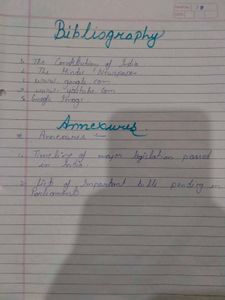 Bibliography
1. The Constitution of India
2. The Hindu Newspaper
3. www.google.com
4. www.youtube.com
5. Google Image
Annexures
* Annexures :-
1. Timeline of major legislation passed
in India.
2. List of Important bills pending in
Parliament